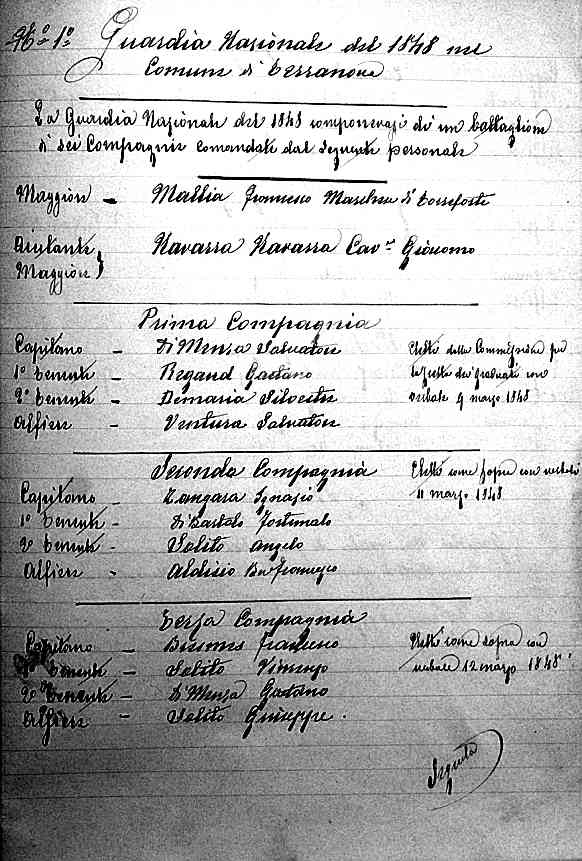 N.º 1º Guardia Nazionale del 1848 nel
Comune di Terranova
La Guardia Nazionale del 1848 componevasi di un battaglione
di sei Compagnie comandate dal seguente personale
Maggiore - Mallia Francesco Marchese di Torreforte
Aiutante
Maggiore } Navarra Navarra Cavre Giacomo
Prima Compagnia
Capitano - Di Menza Salvatore
1º Tenente - Regand Gaetano
2º Tenente - Demaria Silvestre
Alfiere - Ventura Salvatore
Eletti dalla Commissione per
la scelta dei graduati con
verbale 9 marzo 1848
Seconda Compagnia
Capitano - Zangara Ignazio
1º Tenente - Di Bartolo Fortunato
2º Tenente - Solito Angelo
Alfiere - Aldisio Bne Francesco
Eletti come sopra con verbale
11 marzo 1848
Terza Compagnia
Capitano - Francesco
Tenente - Solito Vincenzo
2º Tenente - Di Menza Gaetano
Alfiere - Solito Giuseppe.
Eletti come sopra con
verbale 12 marzo 1848
Seguita